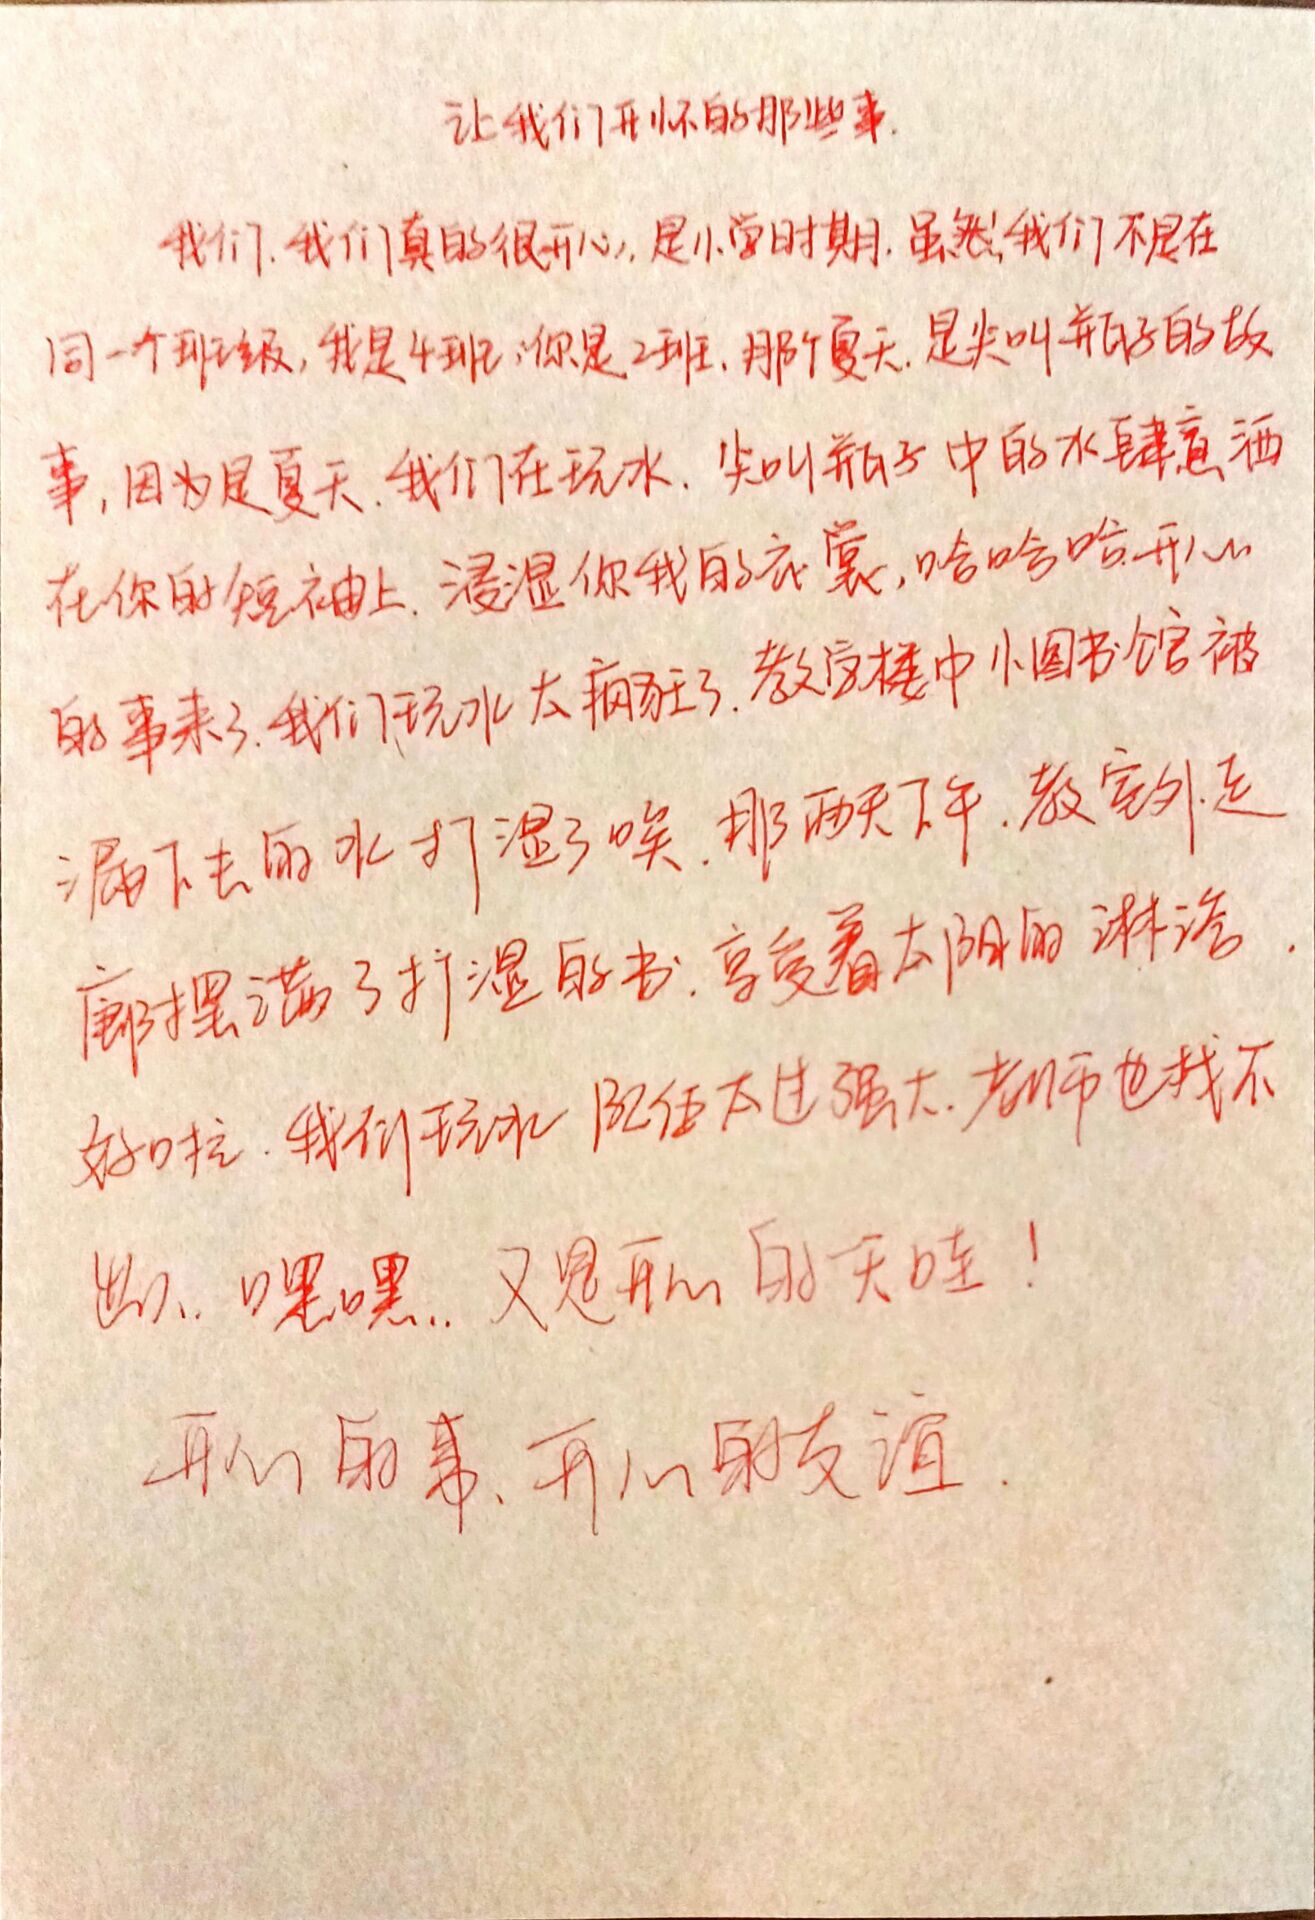 让我们开怀的那些事.
我们.我们真的很开心,是小学时期.虽然我们不是在
同一个班级,我是4班,你是2班.那个夏天.是尖叫瓶子的故
事,因为是夏天.我们在玩水.尖叫瓶子中的水肆意洒
在你的短袖上.浸湿你我的衣裳,哈哈哈.开心
的事来了.我们玩水太疯狂了.教学楼中小图书馆被
漏下去的水打湿了唉.那两天下午.教室外走
廊摆满了打湿的书.享受着太阳的淋浴.
好啦.我们玩水阵伍太过强大.老师也找不
出..嘿嘿..又是开心的天哇!
开心的事、开心的友谊.